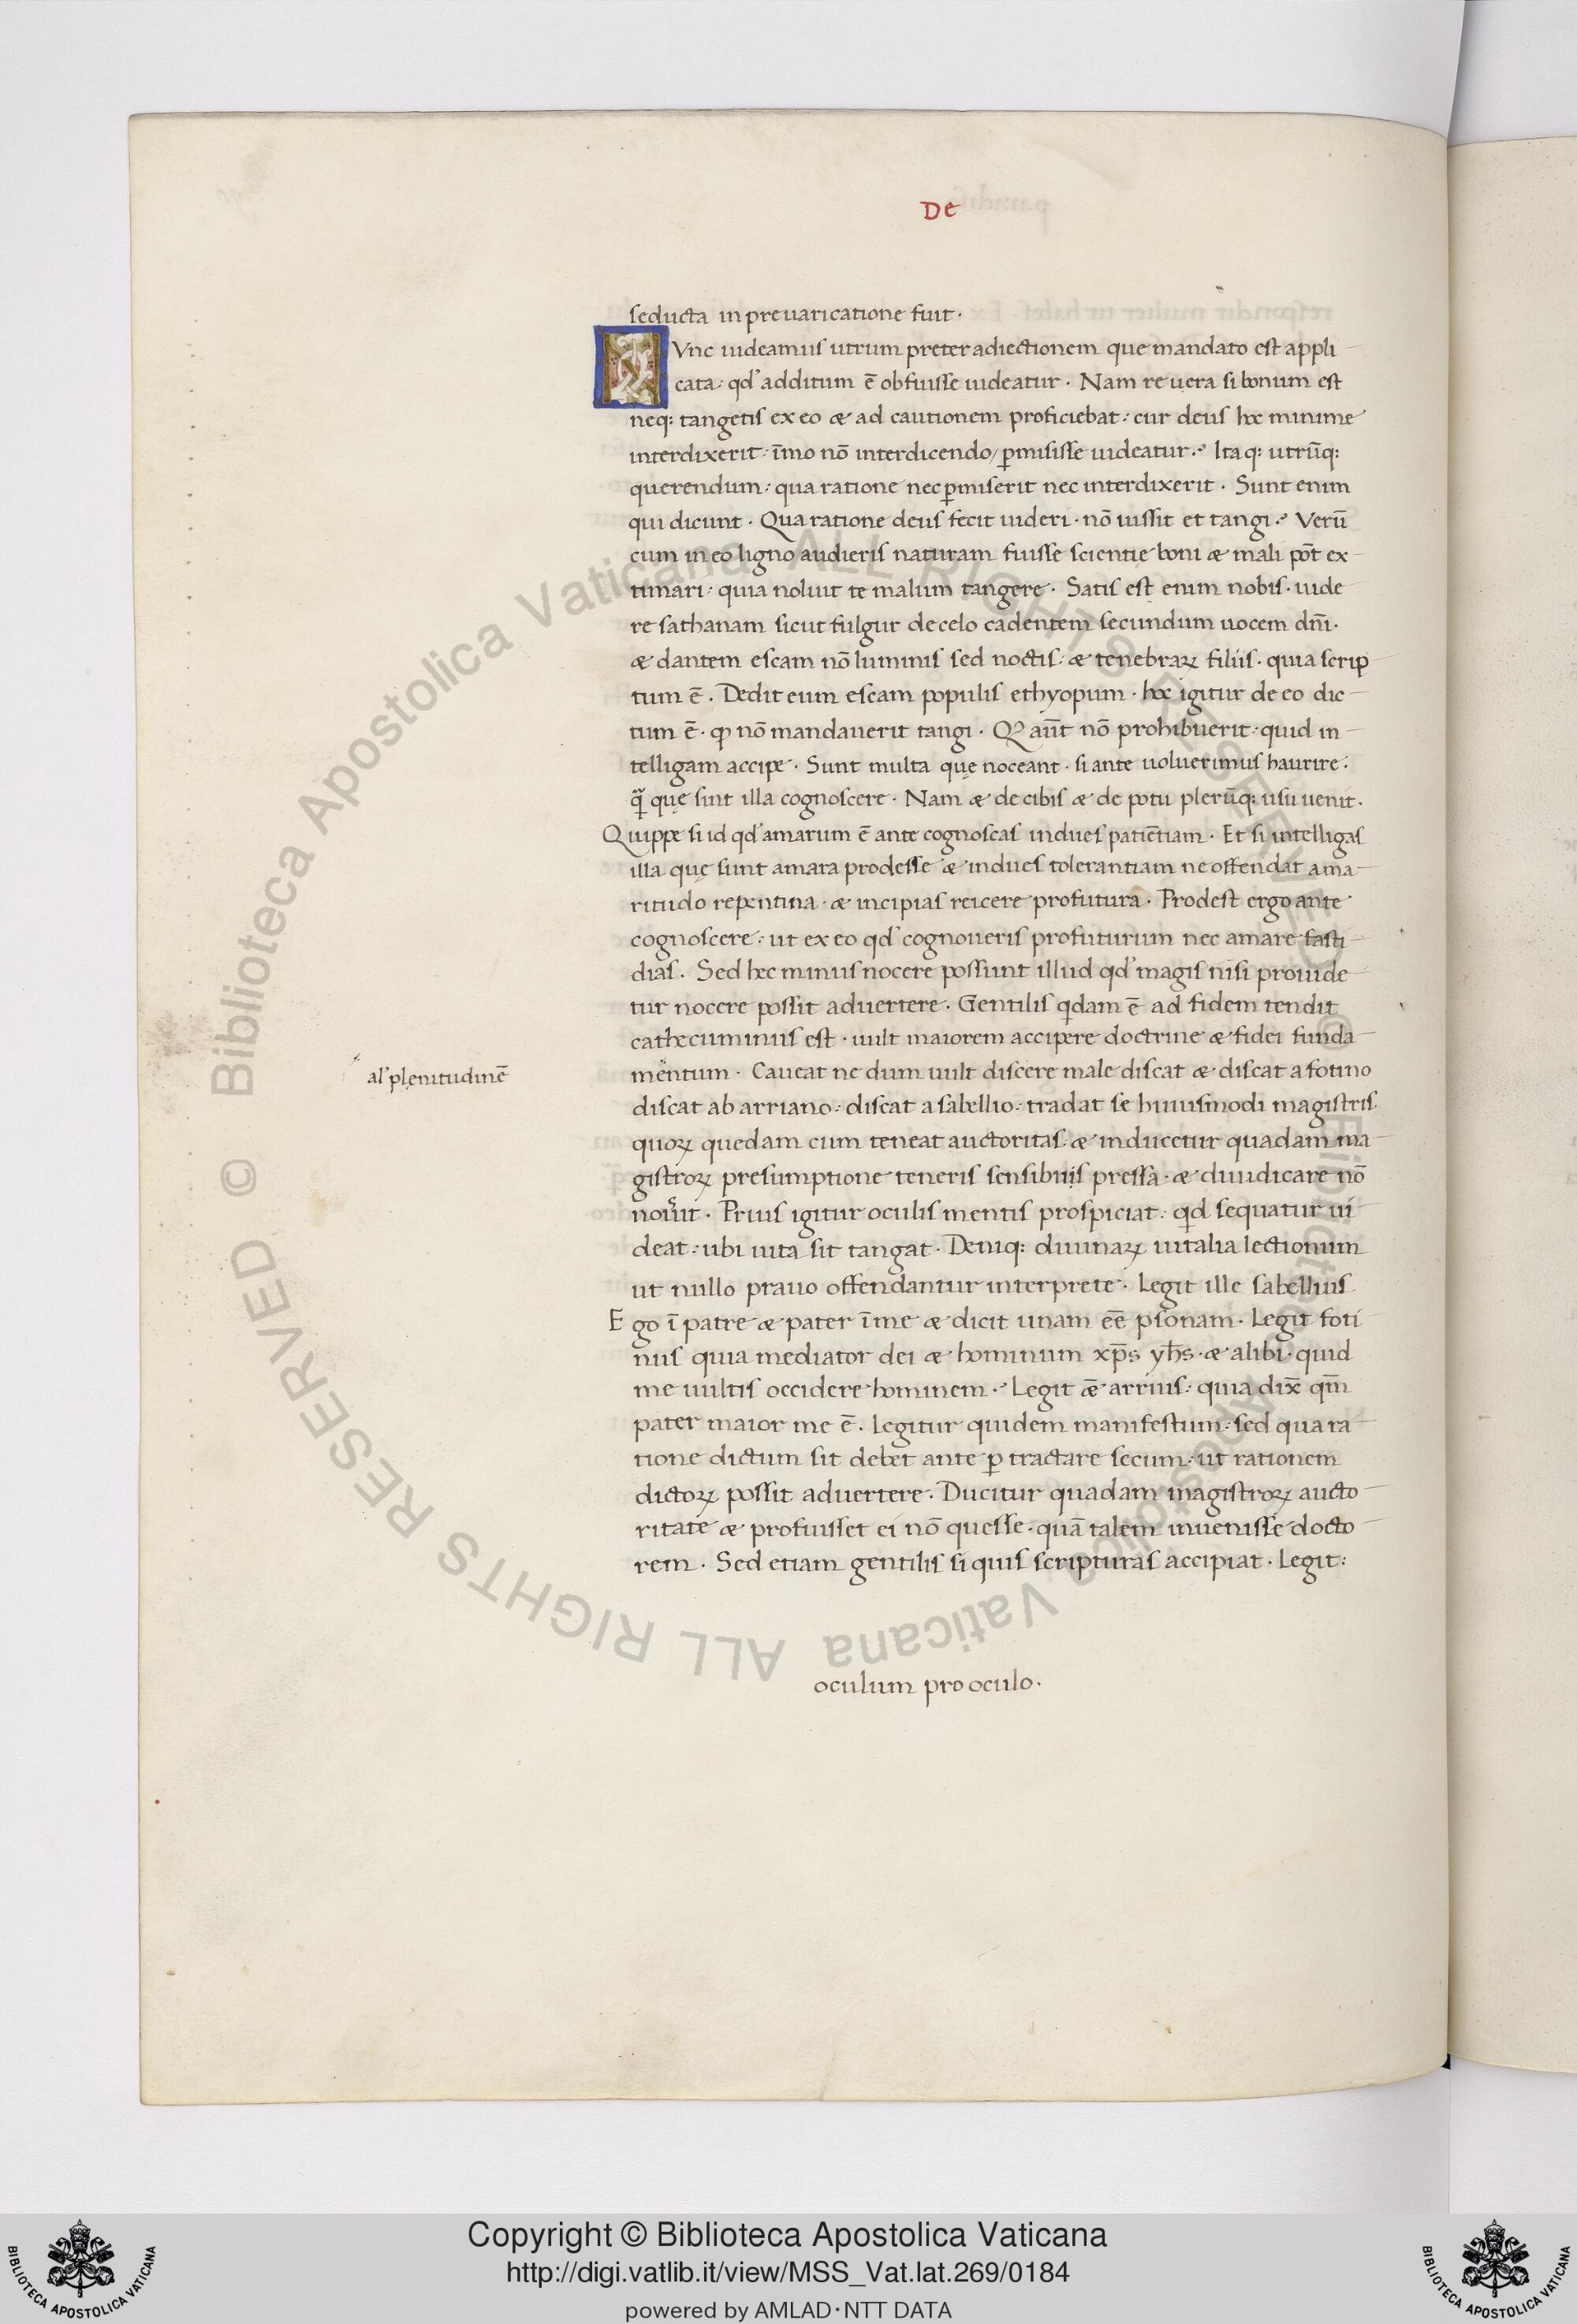 De
seducta in preuaricatione fuit·
NVnc uideamus utrum preter adiectionem que mandato est appli
cata: qd' additum ē obfuisse uideatur · Nam re uera si bonum est
neq: tangetis ex eo & ad cautionem proficiebat: cur deus hoc minime
interdixerit: īmo nō interdicendo/ ꝑmisisse uideatur. Itaq: utrūq:
querendum: qua ratione nec ꝑmiserit nec interdixerit · Sunt enim
qui dicunt · Qua ratione deus fecit uideri · nō iussit et tangi. Verū
cum in eo ligno audieris naturam fuisse scientię boni & mali pōt ex
timari: quia noluit te malum tangere · Satis est enim nobis · uide
re sathanam sicut fulgur de celo cadentem secundum uocem dn̄i·
& dantem escam nō luminis sed noctis: & tenebraꝝ filiis · quia scrip
tum ē . Dedit eum escam populis ethyopum · hoc igitur de eo dic
tum ē · ꝙ nō mandauerit tangi · Qꝙ aūt nō prohibuerit: quid in
telligam accipe · Sunt multa quę noceant · si ante uoluerimus haurire:
q̄ quę sint illa cognoscere · Nam & de cibis & de potu plerūq: usu uenit.
Quippe si id qd' amarum ē ante cognoscas indues patiētiam · Et si intelligas
illa quę sunt amara prodesse & indues tolerantiam ne offendat ama
ritudo repentina · & incipias reicere profutura · Prodest ergo ante
cognoscere: ut ex eo qd' cognoueris profuturum nec amare fasti
dias . Sed hec minus nocere possunt illud qd' magis nisi prouide
tur nocere possit aduertere . Gentilis qidam ē ad fidem tendit
cathecuminus est · uult maiorem accipere doctrine & fidei funda
al' plenitudinē
mentum · Caueat ne dum uult discere male discat & discat a fotino
discat ab arriano: discat a sabellio: tradat se huiusmodi magistris
quoꝝ quedam cum teneat auctoritas: & inducetur quadam ma
gistroꝝ presumptione teneris sensibuis pressa · & diuudicare nō
nouit · Prius igitur oculis mentis prospiciat: qid sequatur ui
deat: ubi uita sit tangat · Deniq: diuinaꝝ uitalia lectionum
ut nullo prauo offendantur interprete · Legit ille sabellius
Ego ī patre & pater ī me & dicit unam eē ꝑsonam · Legit foti
nus quia mediator dei & hominum xp̄s yh̄s · & alibi · quid
me uultis occidere hominem · Legit &̄ arrius: quia dix̄ qm̄
pater maior me ē . Legitur quidem manifestum: sed qua ra
tione dictum sit debet ante ꝑ tractare secum: ut rationem
dictoꝝ possit aduertere . Ducitur quadam magistroꝝ aucto
ritate & profuisset ei nō quesse · quā talem inuenisse docto
rem . Sed etiam gentilis si quis scripturas accipiat · Legit:
oculum pro oculo·
© Biblioteca Apostolica Vaticana ALL RIGHTS RESERVED © Biblioteca Apostolica Vaticana ALL RIGHTS RESERVED
Copyright © Biblioteca Apostolica Vaticana
http://digi.vatlib.it/view/MSS_Vat.lat.269/0184
powered by AMLAD·NTT DATA
BIBLIOTECA APOSTOLICA VATICANA
BIBLIOTECA APOSTOLICA VATICANA